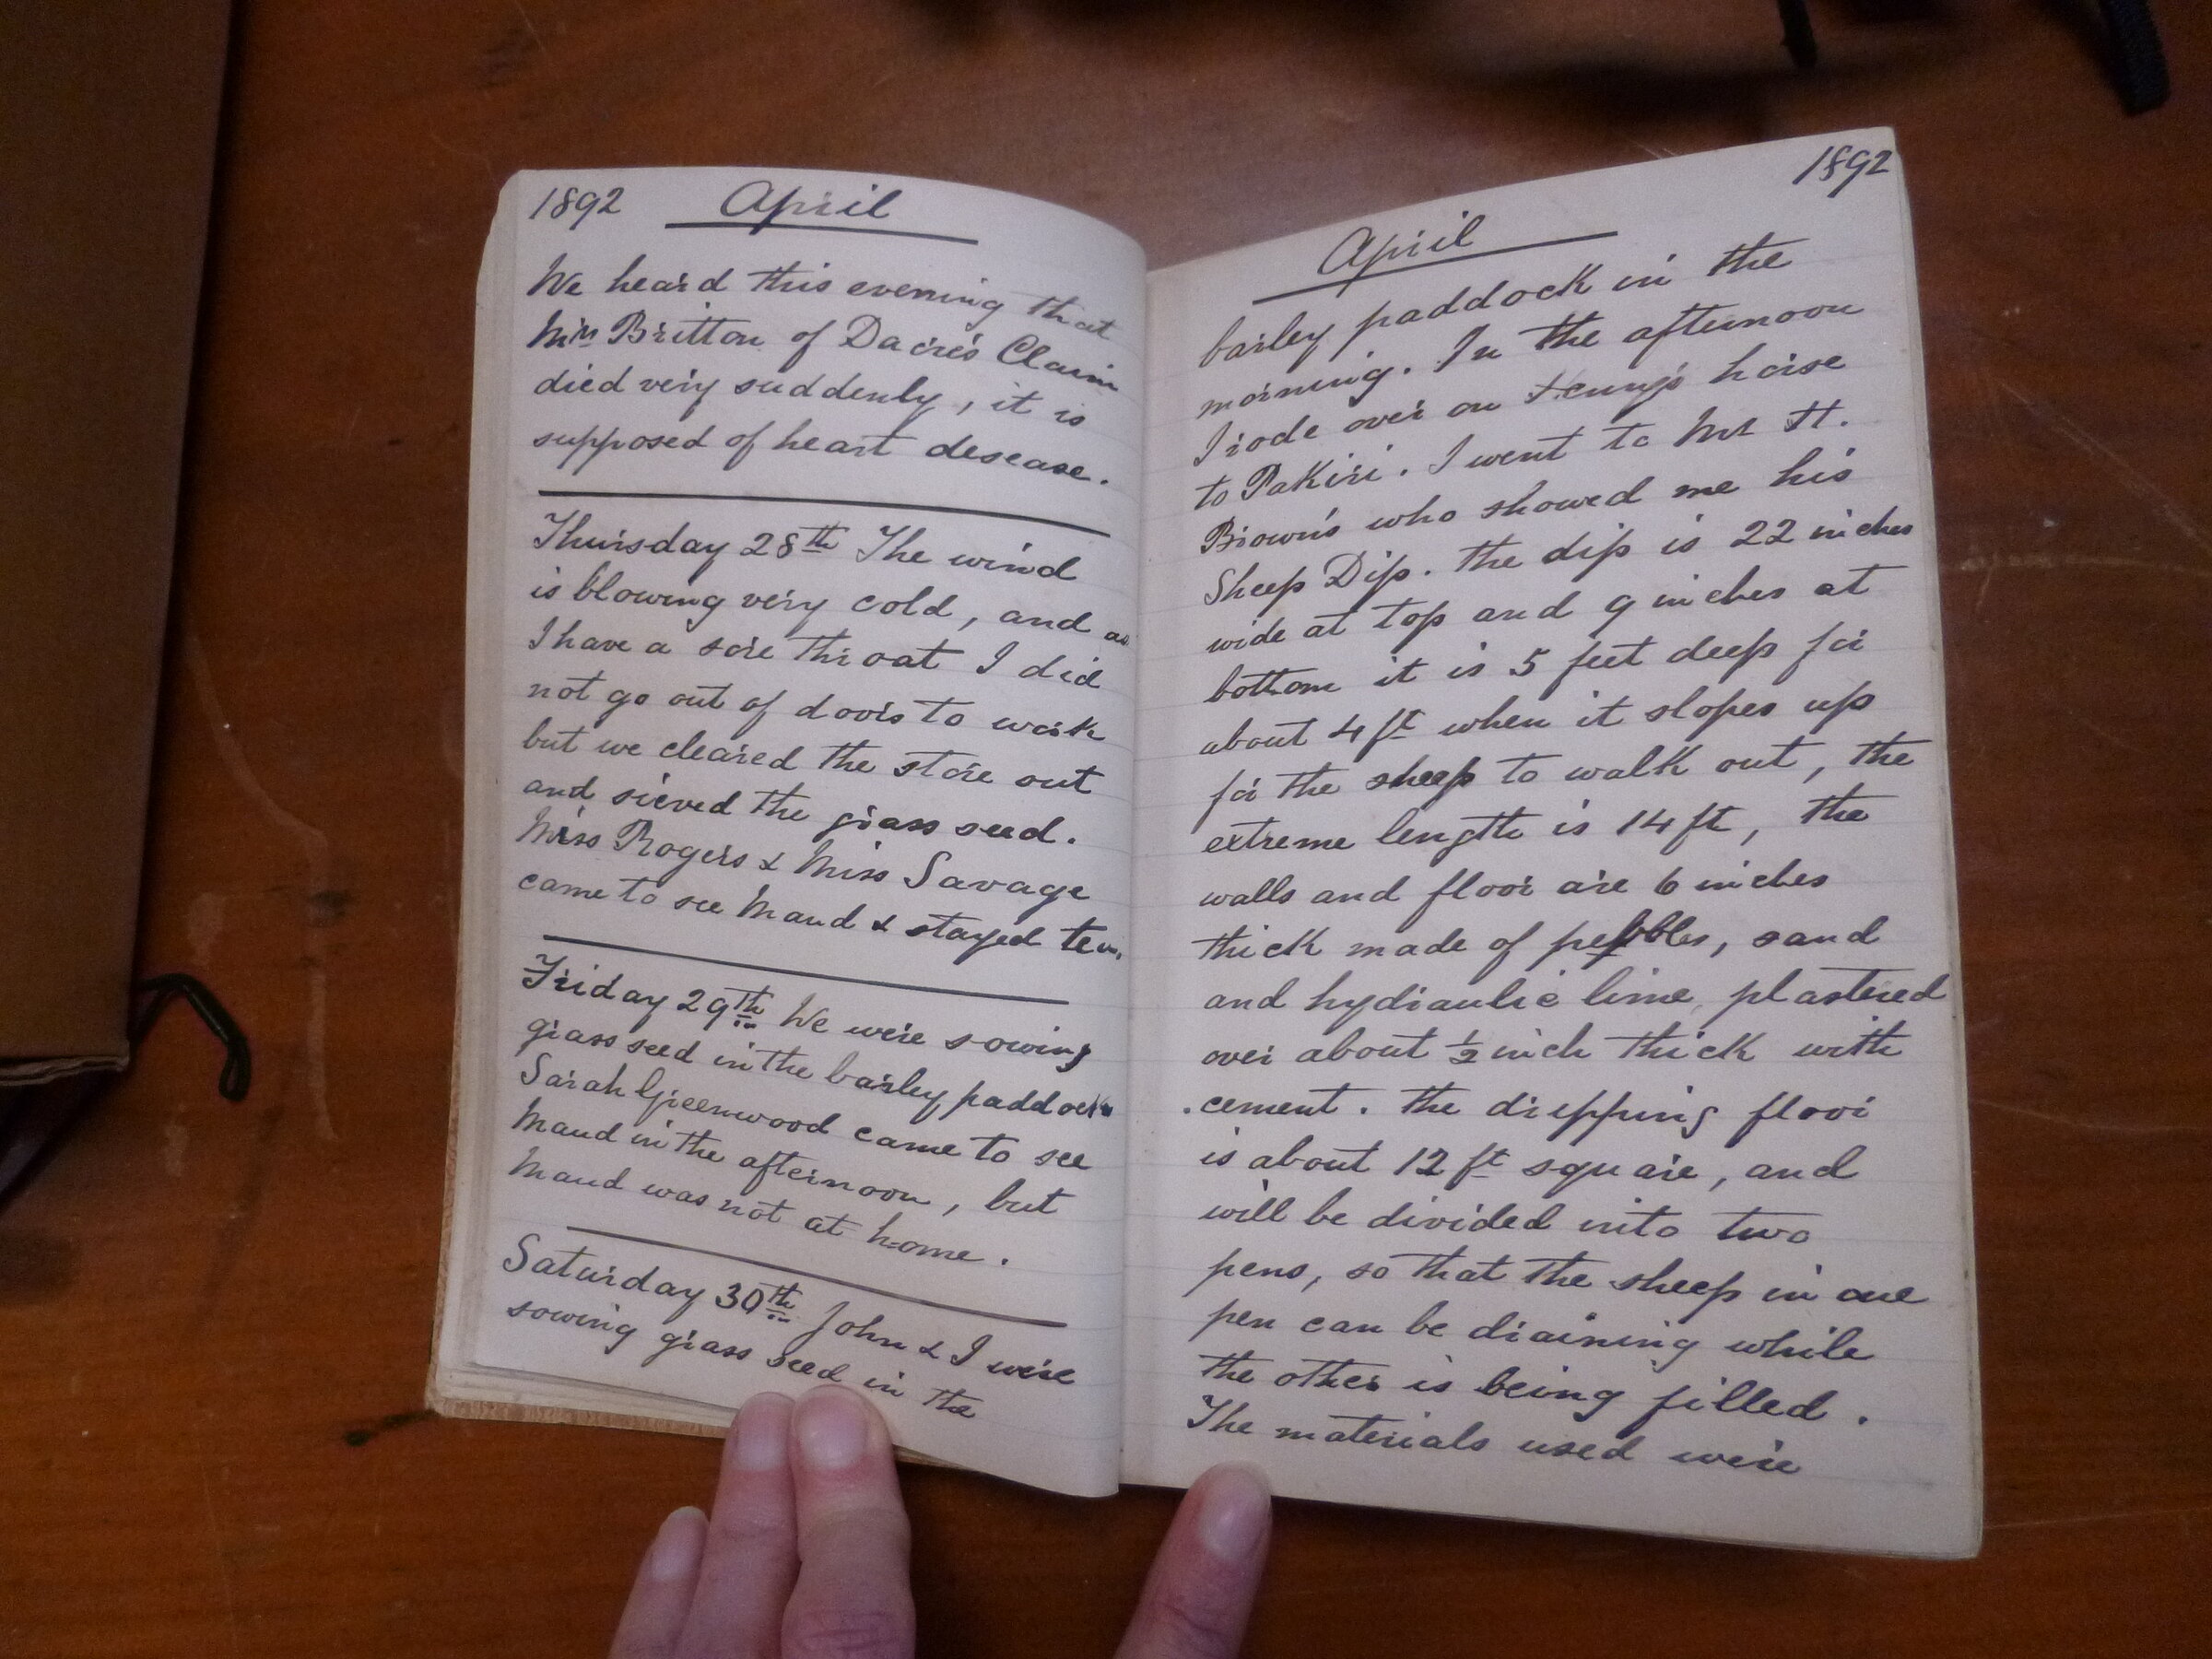 1892 April
We heard this evening that
Mrs Britton of Dacre's Claim
died very suddenly, it is
supposed of heart desease.
Thursday 28th The wind
is blowing very cold, and as
I have a sore throat I did
not go out of doors to work
but we cleared the store out
and sieved the grass seed.
Miss Rogers & Miss Savage
came to see Maud & stayed tea.
Friday 29th We were sowing
grass seed in the barley paddock
Sarah Greenwood came to see
Maud in the afternoon, but
Maud was not at home.
Saturday 30th John & I were
sowing grass seed in the
1892
April
barley paddock in the
morning. In the afternoon
I rode over on horse
to Pakiri. I went to Mr H.
Brown's who showed me his
Sheep Dip. The dip is 22 inches
wide at top and 9 inches at
bottom it is 5 feet deep for
about 4 ft when it slopes up
for the sheep to walk out, the
extreme length is 14 ft, the
walls and floor are 6 inches
thick made of pebbles, sand
and hydraulic lime, plastered
over about ½ inch thick with
cement. The diepping floor
is about 12 ft square, and
will be divided into two
pens, so that the sheep in one
pen can be draining while
the other is being filled.
The materials used were